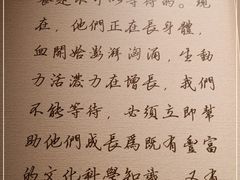 在，他們正在長身體，
血開始澎湃洶涌，生動
力活潑力在增長，我們
不能等待，必須立即幫
助他們成長爲既有豐富
的文化科學知識 又有